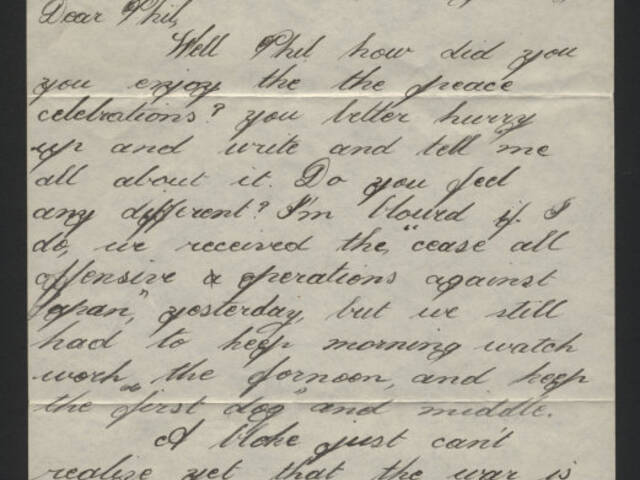 Dear Phil,
Well Phil how did you
you enjoy the the peace
celebrations? you better hurry
up and write and tell me
all about it. Do you feel
any different? I'm blowed if I
do, we received the, "cease all
offensive & operations against
Japan," yesterday, but we still
had to keep morning watch
work the fornoon, and keep
the "first dog" and middle.
A bloke just can't
realise yet that the war is